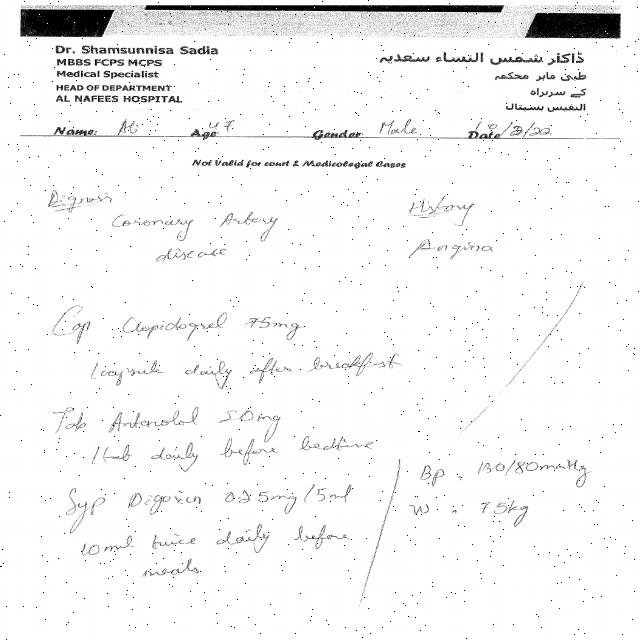 Dr. Shamsunnisa Sadia
MBBS FCPS MCPS
Medical Specialist
HEAD OF DEPARTMENT
AL NAFEES HOSPITAL
ڈاکٹر شمس النساء سعدیہ
طبی ماہر محکمہ
کے سربراہ
النفیس ہسپتال
Name: Ali Age 47. Gender Male Date /3/22
Not Valid for court & Medicolegal Cases
Dignosis
Coronary Artery
disease
History
Angina
Cap Clopidogrel 75mg
1 capsule daily after breakfast
Tab Antenolol 50mg
1 tab daily before bedtime
Syp Digoxin 0.25mg/5ml
10ml twice daily before
meals
Bp : 130/80mmHg
W : 75kg